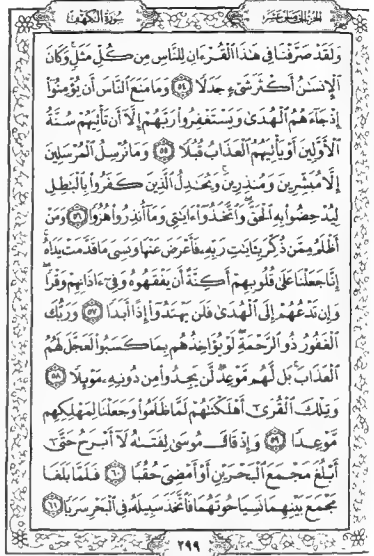 الجزء الخامس عشر
سورة الكهف
وَلَقَدْ صَرَّفْنَا فِي هَٰذَا ٱلْقُرْءَانِ لِلنَّاسِ مِن كُلِّ مَثَلٍ وَكَانَ
ٱلْإِنسَٰنُ أَكْثَرَ شَىْءٍ جَدَلًا ٥٤ وَمَا مَنَعَ ٱلنَّاسَ أَن يُؤْمِنُوٓا۟
إِذْ جَآءَهُمُ ٱلْهُدَىٰ وَيَسْتَغْفِرُوا۟ رَبَّهُمْ إِلَّآ أَن تَأْتِيَهُمْ سُنَّةُ
ٱلْأَوَّلِينَ أَوْ يَأْتِيَهُمُ ٱلْعَذَابُ قُبُلًا ٥٥ وَمَا نُرْسِلُ ٱلْمُرْسَلِينَ
إِلَّا مُبَشِّرِينَ وَمُنذِرِينَ وَيُجَٰدِلُ ٱلَّذِينَ كَفَرُوا۟ بِٱلْبَٰطِلِ
لِيُدْحِضُوا۟ بِهِ ٱلْحَقَّ وَٱتَّخَذُوٓا۟ ءَايَٰتِى وَمَآ أُنذِرُوا۟ هُزُوًا ٥٦ وَمَنْ
أَظْلَمُ مِمَّن ذُكِّرَ بِـَٔايَٰتِ رَبِّهِۦ فَأَعْرَضَ عَنْهَا وَنَسِىَ مَا قَدَّمَتْ يَدَاهُ
إِنَّا جَعَلْنَا عَلَىٰ قُلُوبِهِمْ أَكِنَّةً أَن يَفْقَهُوهُ وَفِىٓ ءَاذَانِهِمْ وَقْرًا
وَإِن تَدْعُهُمْ إِلَى ٱلْهُدَىٰ فَلَن يَهْتَدُوٓا۟ إِذًا أَبَدًا ٥٧ وَرَبُّكَ
ٱلْغَفُورُ ذُو ٱلرَّحْمَةِ لَوْ يُؤَاخِذُهُم بِمَا كَسَبُوا۟ لَعَجَّلَ لَهُمُ
ٱلْعَذَابَ بَل لَّهُم مَّوْعِدٌ لَّن يَجِدُوا۟ مِن دُونِهِۦ مَوْئِلًا ٥٨
وَتِلْكَ ٱلْقُرَىٰٓ أَهْلَكْنَٰهُمْ لَمَّا ظَلَمُوا۟ وَجَعَلْنَا لِمَهْلِكِهِم
مَّوْعِدًا ٥٩ وَإِذْ قَالَ مُوسَىٰ لِفَتَىٰهُ لَآ أَبْرَحُ حَتَّىٰٓ
أَبْلُغَ مَجْمَعَ ٱلْبَحْرَيْنِ أَوْ أَمْضِىَ حُقُبًا ٦٠ فَلَمَّا بَلَغَا
مَجْمَعَ بَيْنِهِمَا نَسِيَا حُوتَهُمَا فَٱتَّخَذَ سَبِيلَهُۥ فِى ٱلْبَحْرِ سَرَبًا ٦١
٢٩٩